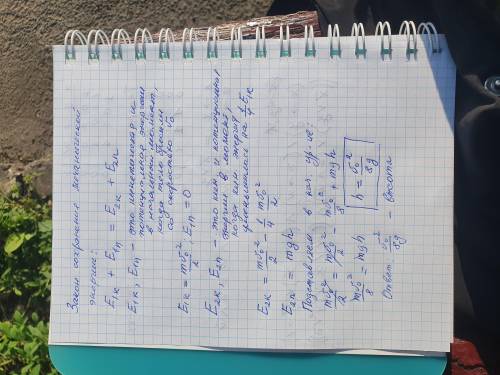 Закон сохранения механической
энергии:
E₁ₖ + E₁ₙ = E₂ₖ + E₂ₙ
E₁ₖ, E₁ₙ – это кинетическая и
потенциальная энергии
в начальный момент,
когда тело бросили
со скоростью υ₀
E₁ₖ = mυ₀²/2 ; E₁ₙ = 0
E₂ₖ, E₂ₙ – это кин. и потенциальная
энергия в момент,
когда кин. энергия
уменьшилась на 1/4 E₁ₖ
E₂ₖ = mυ₀²/2 – 1/4 mυ₀²/2
E₂ₙ = mgh
Подставляем в нач. ур-ие:
mυ₀²/2 = mυ₀²/2 – mυ₀²/8 + mgh
mυ₀²/8 = mgh h = υ₀²/8g
Ответ: υ₀²/8g – высота